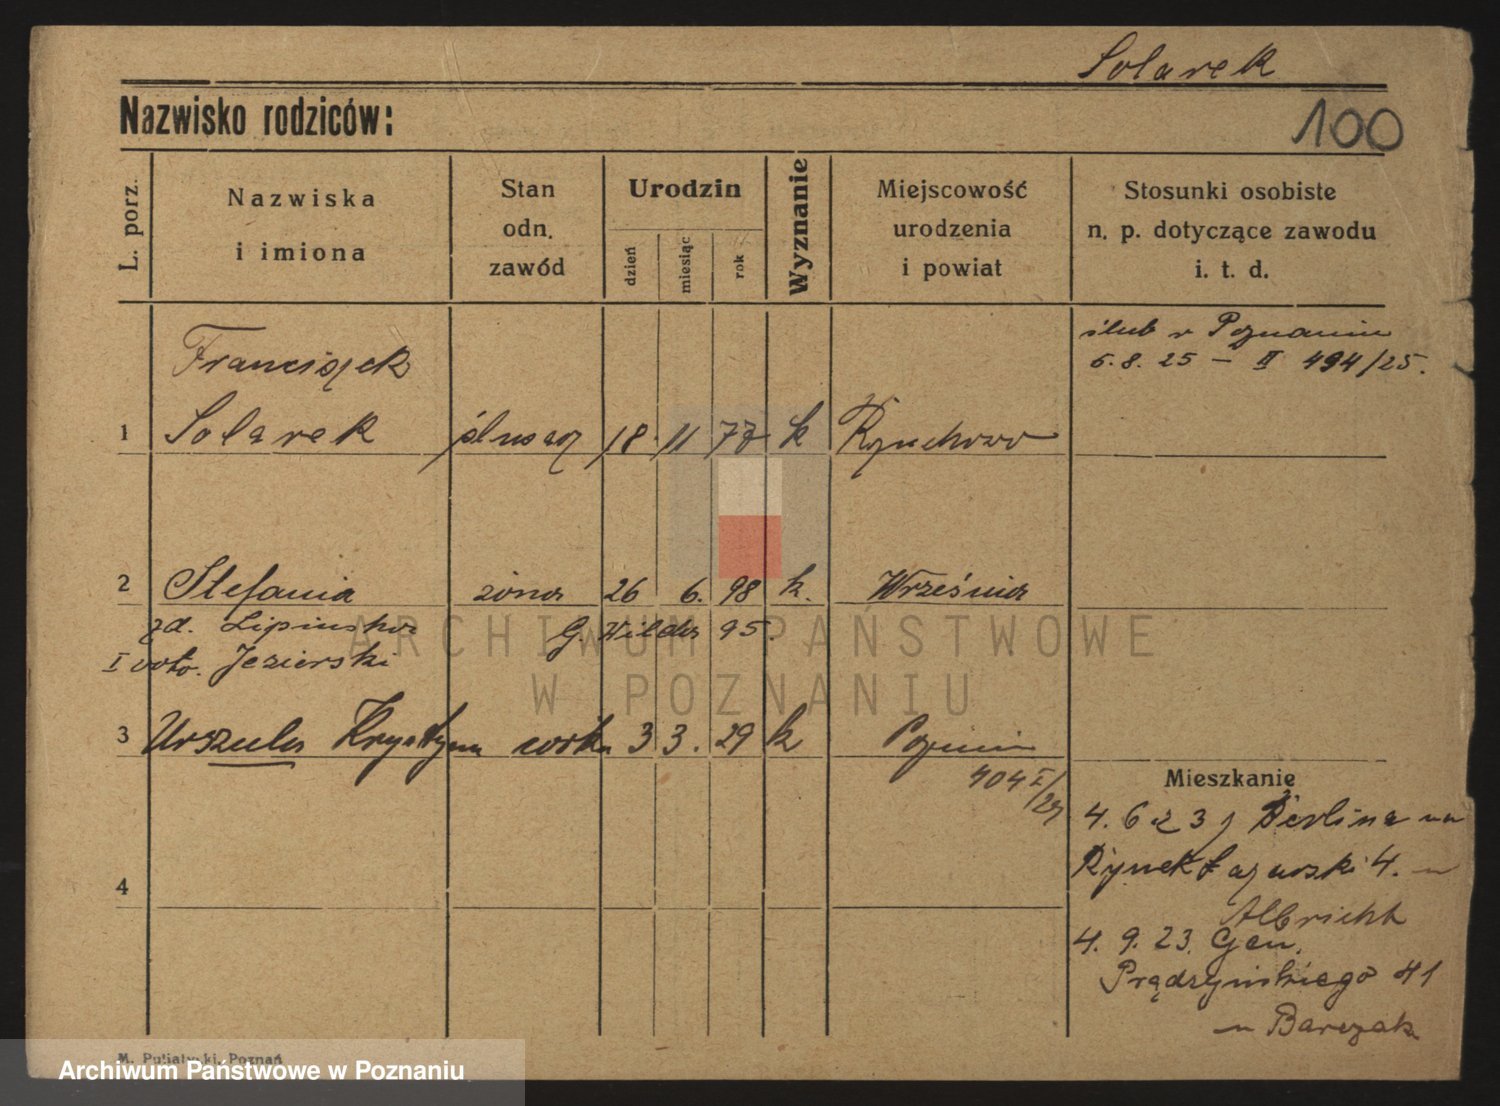 Solarek
Nazwisko rodziców:
100
L. porz.
Nazwiska
i imiona
Stan
odn.
zawód
Urodzin
dzień
miesiąc
rok
Wyznanie
Miejscowość
urodzenia
i powiat
Stosunki osobiste
n. p. dotyczące zawodu
i. t. d.
ślub w Poznaniu
5.8.25 – II 494/25.
Franciszek
1 Solarek ślusarz 18 11 77 k
2 Stefania żona 26 6. 98 k. Września
zd. Lipińska G. Wilda 95.
I voto. Jezierski
ARCHIWUM PAŃSTWOWE
W POZNANIU
3 Urszula Krystyna córka 3 3. 29 k Poznań
404 I/29
Mieszkanie
4. 6 23 z Berlina na
Rynek Łazarski 4. u
Albricht
4. 9. 23. Gen.
Prądzyńskiego 41
u Barczak
4
M. Putiatycki, Poznań
Archiwum Państwowe w Poznaniu